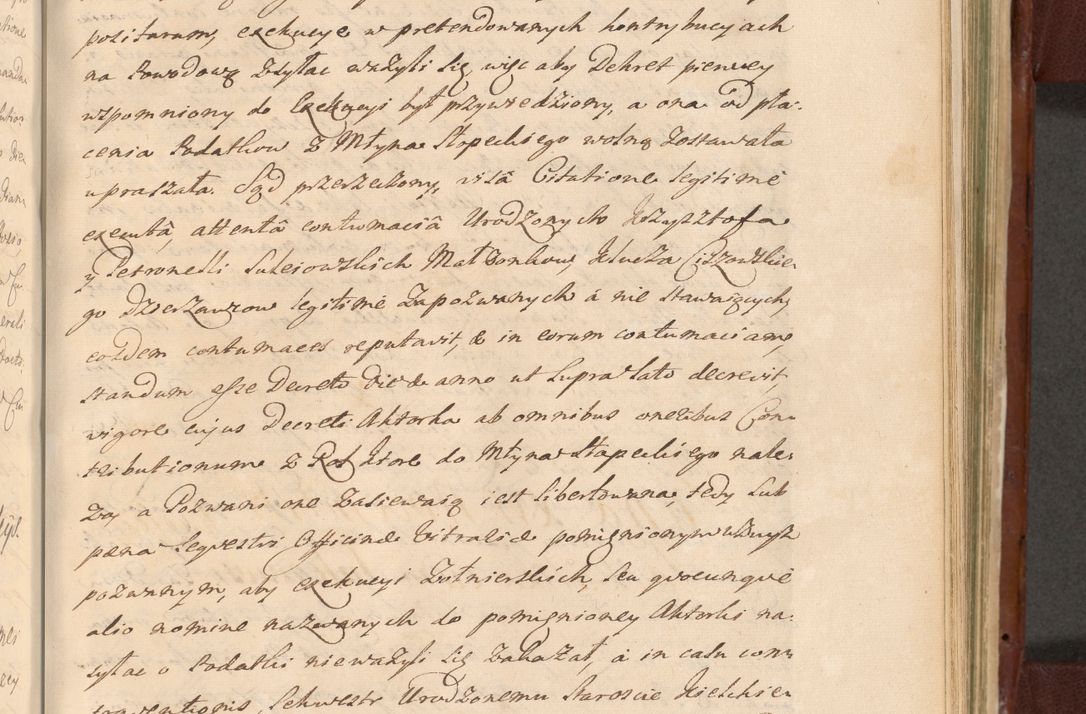 positarum, exekucye w pretendowanych kontrybucyach
na Powodową zsyłac ważyli się, więc aby Dekret pierwey
wzpomniony do Exekucyi był przywiedziony, a ona od pła-
cenia Podatkow z Młyna Słapeckiego wolną zostawała
upraszała. Sąd przerzeczony, visâ Citatione legitimè
executâ, attentâ contumaciâ Urodzonych Krzysztofa
y Petronelli Suleiowskich Małżonkow, Klucza Ciszowskie-
go Dzierzawcow legitimè zapozwanych á nie stawaiących,
eosdem contumaces reputavit, & in eorum contumaciam,
standum esse Decreto die & anno ut supra lato decrevit
vigore cujus Decreti Aktorka ab omnibus oneribus Con-
tributionum z Rol ktore do Młyna Słapeckiego nale-
żą, a Pozwani one zasiewaią iest libertowana, tedy sub
pæna sequestri Officinæ Vitralis pomienionym
pozwanym, aby exekucyi Żołnierskich, seu quocunque
alio nomine nazwanych do pomienioney Aktorki na-
syłac o Podatki nieważyli się zakazał, á in casu con-
traventionis, Sekwestr Urodzonemu Staroscie Kielckie-